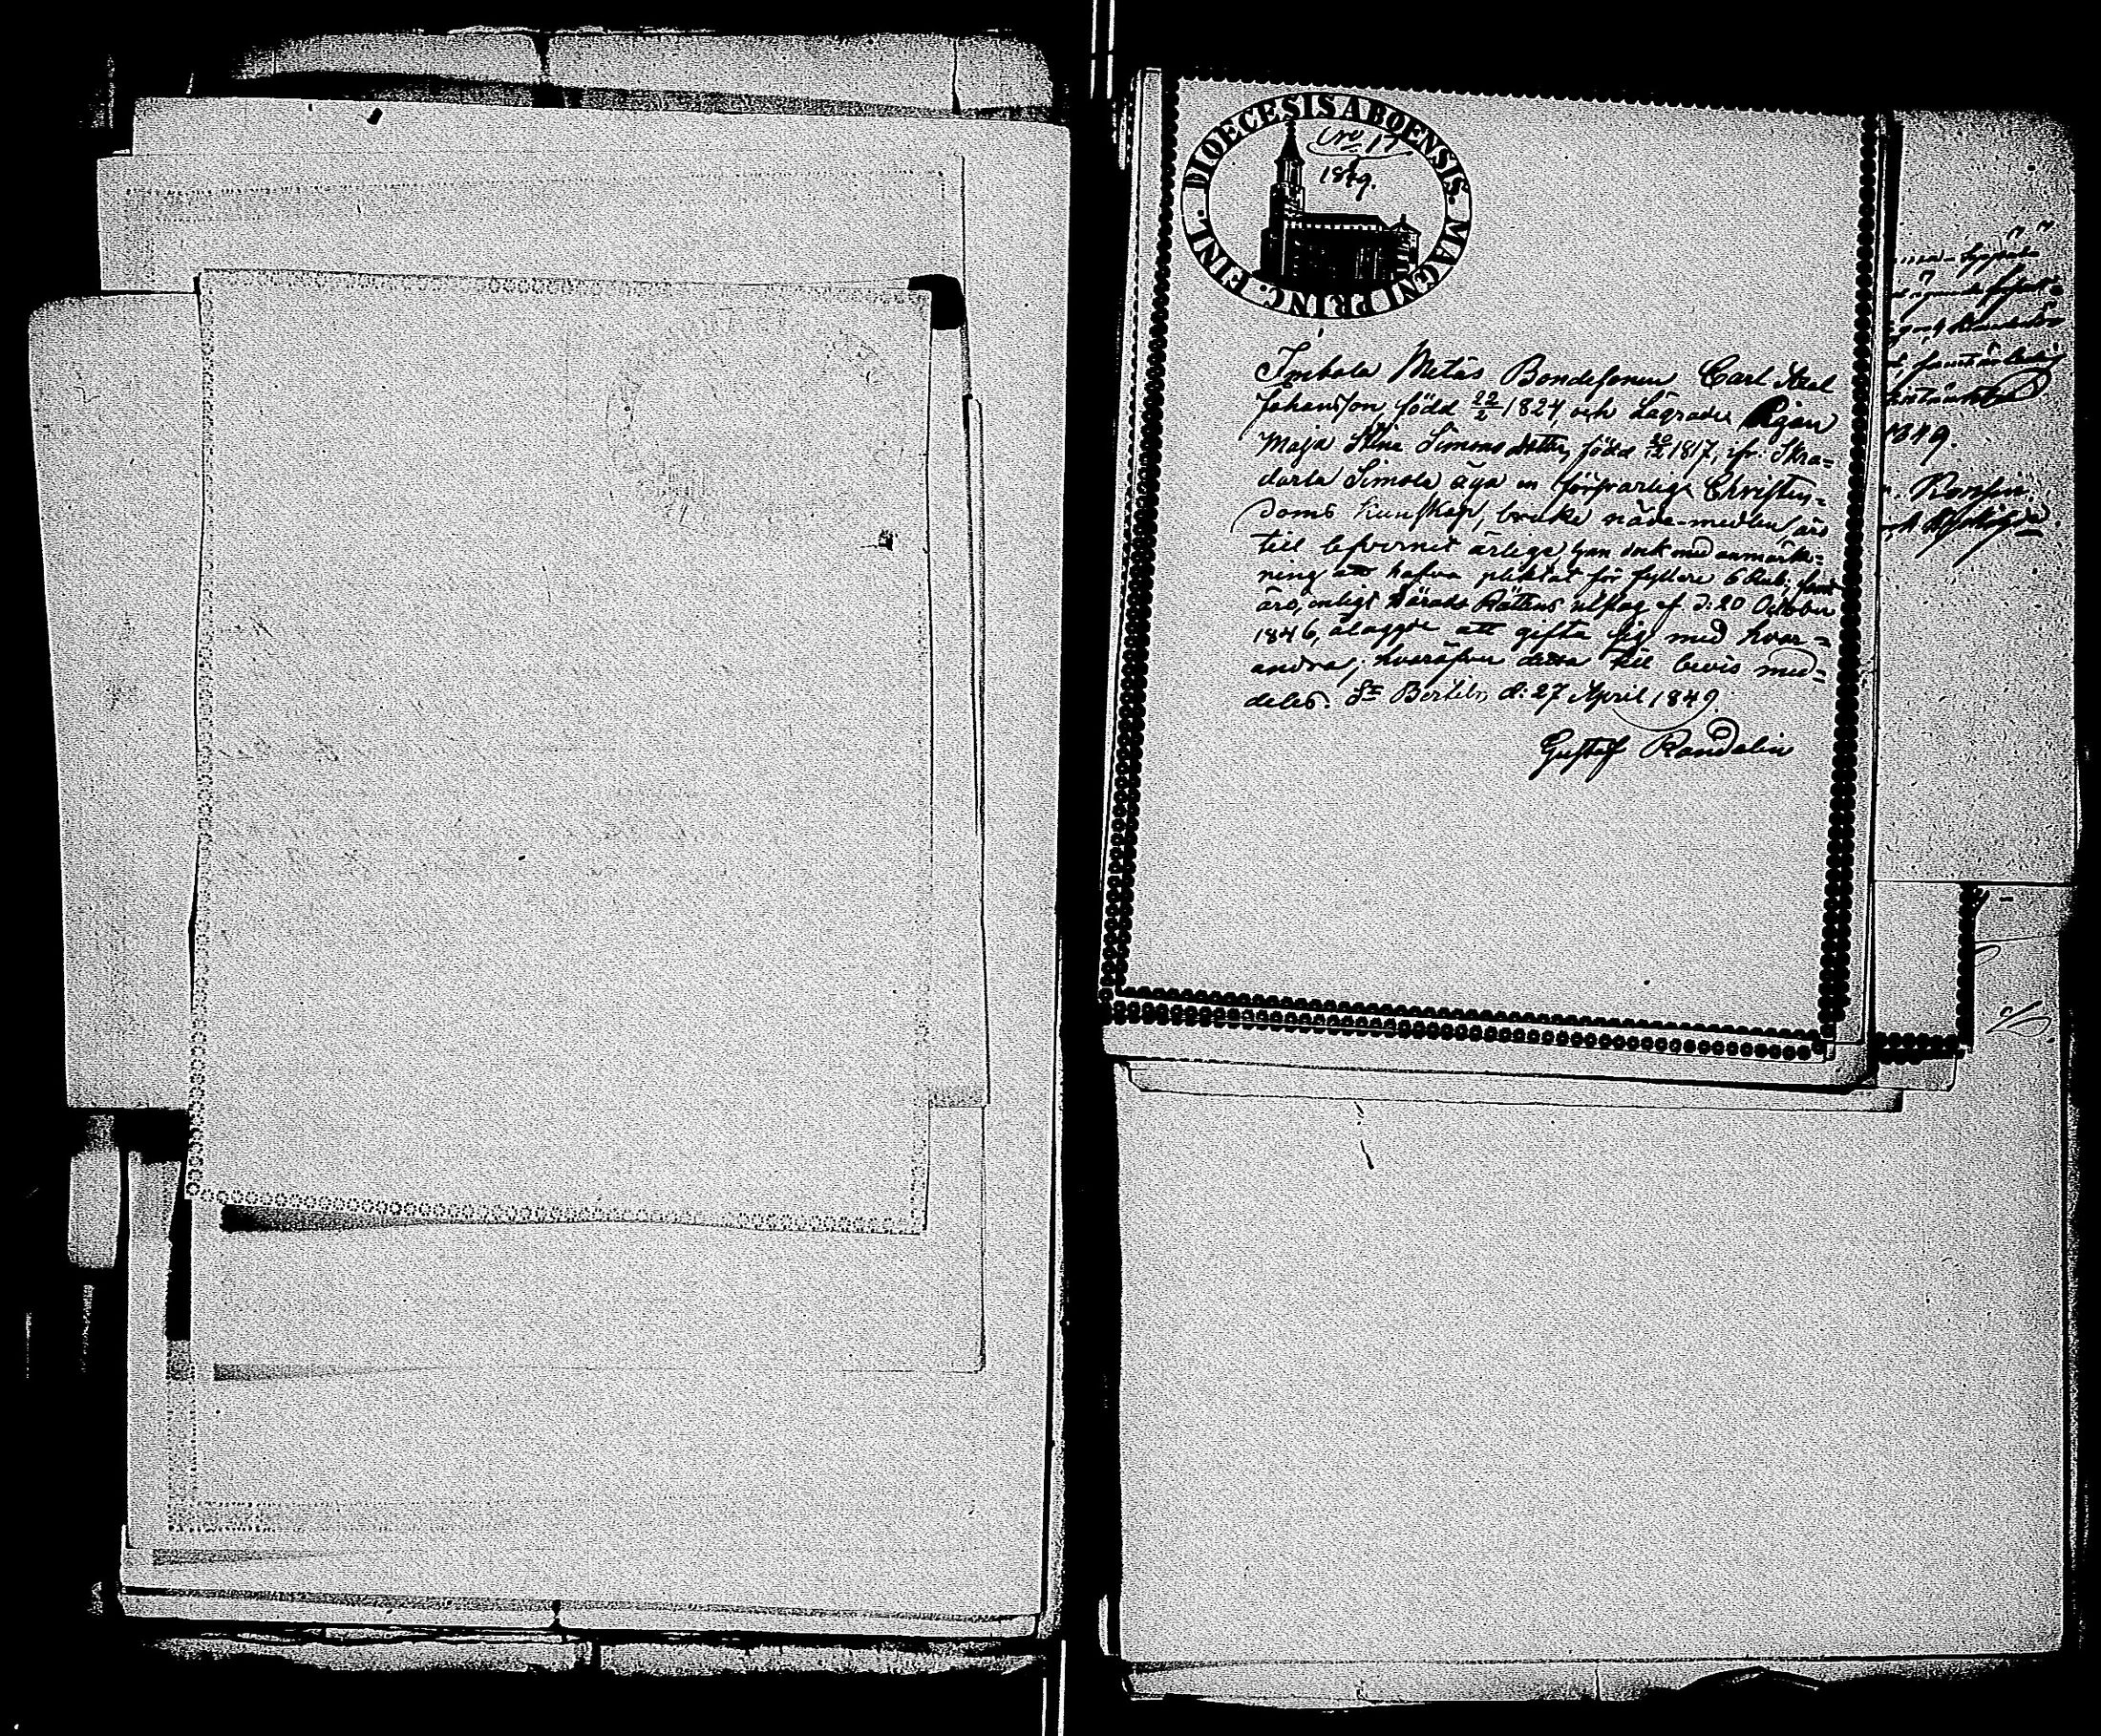 DIOECESIS ABOENSIS. MAGNI PRINC. FINL.
No 17
1849.
Metas Bondesonen Carl Axel
Johansson, född 22/2 1824, och Lägrade Pigan
Maja Stina Simonsdotter, född 1817, ifr. Skra-
darla Simola äga en försvarlig Christen-
doms kunskap, bruka nåde-medlen, äro
till lefvernet ärlige, han dock med anmärk-
ning att hafva pliktat för fylleri 6 Rub., samt
äro, enligt Härads Rättens utslag af d: 20 October
1846, ålaggde att gifta sig med hvar-
andra; hvaröfver detta till bevis med-
deles. St Bertils, d: 27 April 1849.
Gustaf Randelin
1849.